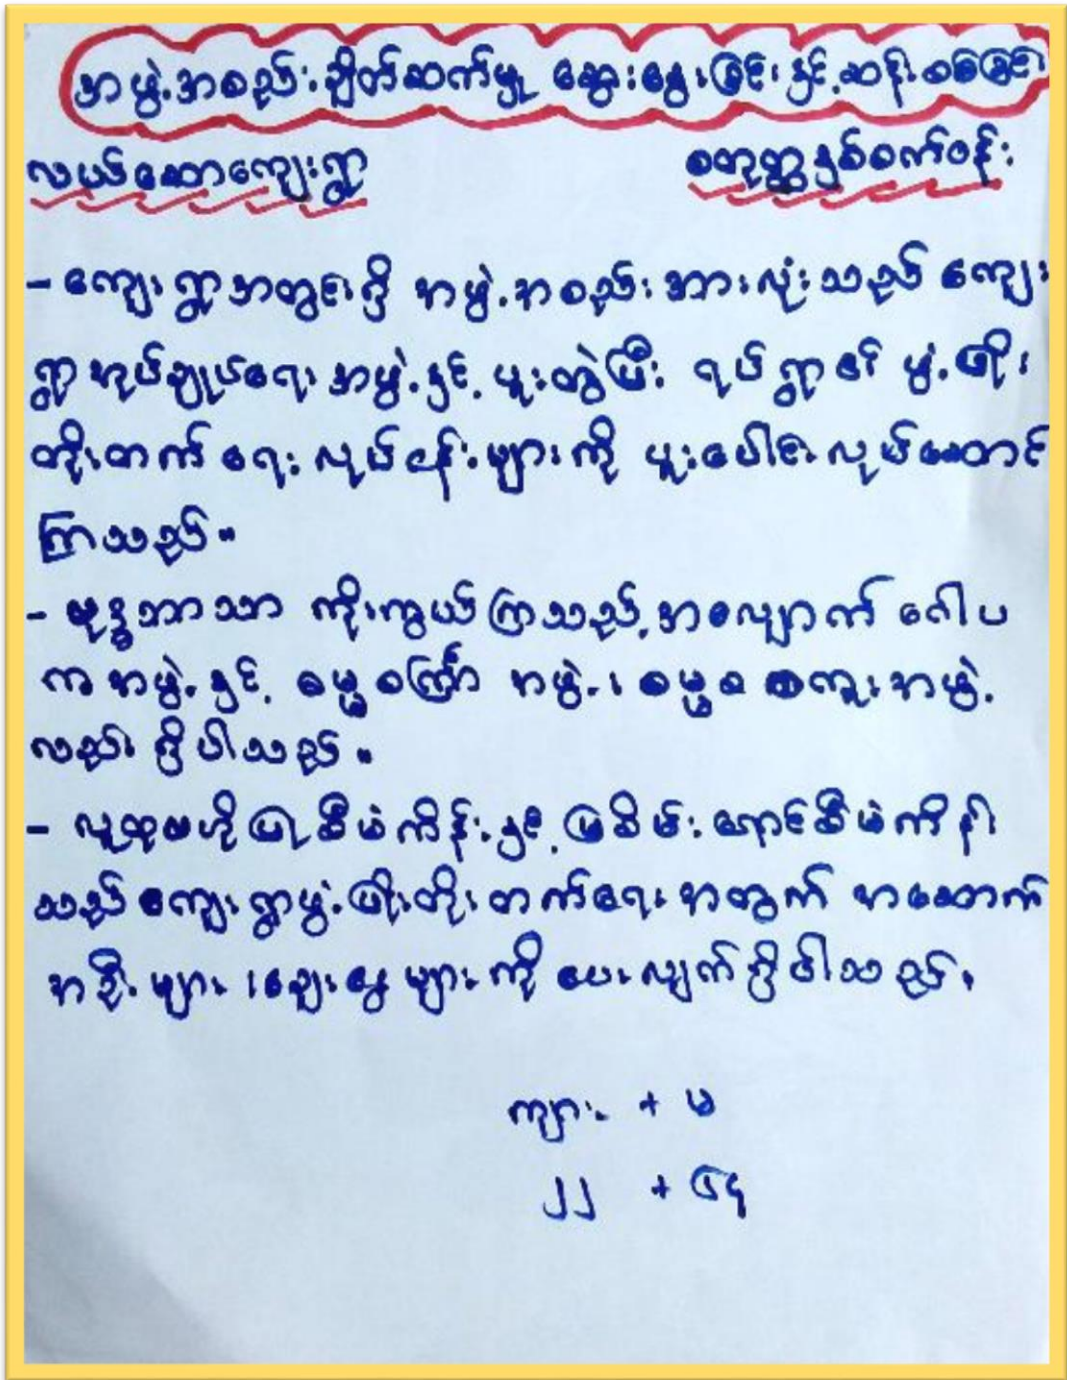 အဖွဲ့အစည်းချိတ်ဆက်မှု ဆွေးနွေးခြင်းနှင့်ဆန်းစစ်ခြင်း
လယ်ဆောကျေးရွာ စတုတ္ထနှစ်စက်ဝန်း
- ကျေးရွာအတွင်းရှိ အဖွဲ့အစည်းအားလုံးသည် ကျေး
ရွာအုပ်ချုပ်ရေးအဖွဲ့နှင့် ပူးတွဲပြီး ရပ်ရွာ၏ ဖွံ့ဖြိုး
တိုးတက်ရေးလုပ်ငန်းများကို ပူးပေါင်းလုပ်ဆောင်
ကြသည်။
- ဗုဒ္ဓဘာသာ ကိုးကွယ်ကြသည့်အလျောက် ဂေါပ
ကအဖွဲ့နှင့် ဓမ္မစကြာ အဖွဲ့၊ ဓမ္မ အဖွဲ့
လည်း ရှိပါသည်။
- လူထုဗဟိုပြုစီမံကိန်းနှင့် မြစိမ်းရောင်စီမံကိန်း
သည် ကျေးရွာဖွံ့ဖြိုးတိုးတက်ရေးအတွက် အဆောက်
အဦးများ၊ ချေးငွေများကို ပေးလျက်ရှိပါသည်။
ကျား + မ
၂၂ + ၆၄